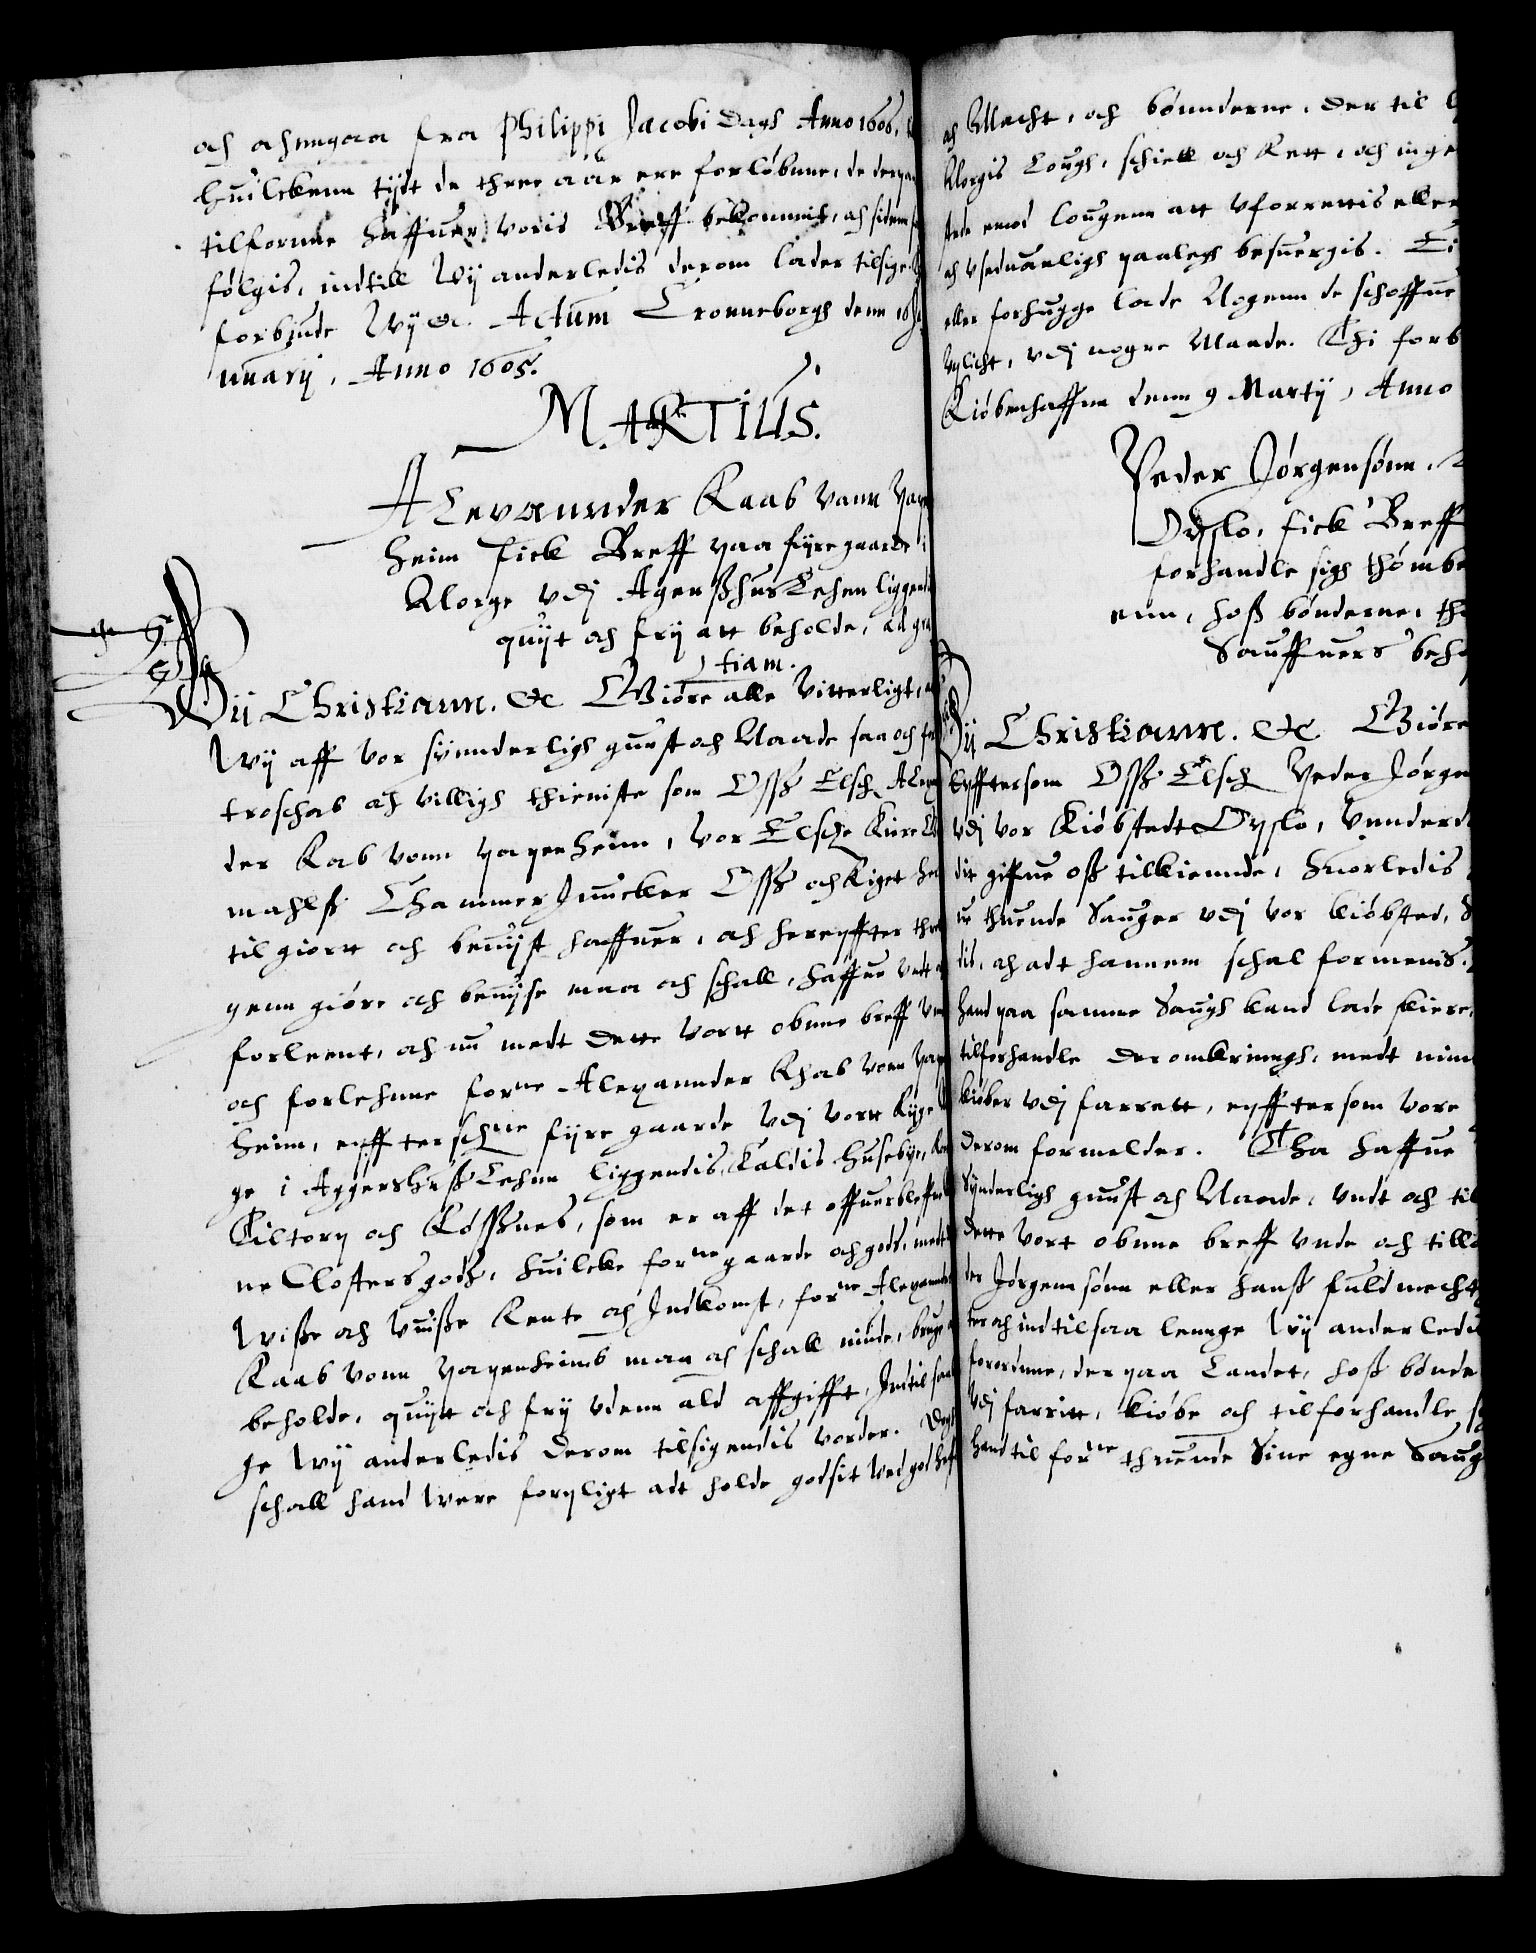 och ahnngaa fra Philippi Jacobi dagh Anno 1606,
huilckenn tijdt de three aar ere forløbne, de derpaa
tilfornne haffuer voris Breff bekommit, och siden
følgis, indtill Wij anderledis derom lader tilsige
forbiude Wij &c. Actum Cronneborgh denn 16 Ja
nuarij, Anno 1605.
MARTIUS.
Alexannder Raab vonn Pap
heim fick Breff paa fijre gaarde i
Norge vdj Agershus Lehen liggend
quijt och frij att beholde, ad gra
tiam.
Wij Christiann. &c Giøre alle Vitterligt, at
Wij aff vor synnderligh gunst och Naade saa och for
troschab och villigh thieniste som Osz Elsch Alexan
der Rab vonn papenheim, Vor Elsche Kiere
mahls Chammer Junncker Osz och Riget her
til giort och beuijst haffuer, och herepffter thro
genn giøre och beuijse maa och schall, haffue undt
forleent, och nu medt dette vort obnne breff un
och forlehnne forne Alexannder Rhab vonn pap
heim, epffterschne fijre gaarde vdj vort Rige Nor
ge i Aggershusz Lehnn liggendis, Kaldis Husebye,
Kiltorp och Røsznes, som er aff det offuerbleffne
ne Closters godtz, Huilcke forne gaarde och godz, medt
Wisse och Vuisse Rente och Indkomst, forne Alexander
Raab vonn papenheimb maa och schall niude, bruge
beholde, quijtt och frij vdenn ald affgifft, Indtil saa
ge Wij anderledis derom tilsigendis vorder. Dog
schall hand were forpligt adt holde godsit ved god heffd
och Macht, och bønnderne, der til
Norgis Lough, schiell och Rett, och inge
stede emod lougenn att vforrettis eller
och vseduanligh paalegh besuergis. Ei
eller forhugge lade Nogenn de schoffue
vplicht, vdj nogre Maade. Thi forb
Kiøbenhaffnn denn 9 Martij, Anno
Peder Jørgensønn,
Opslo, fick Breff
forhandle sigh thømbe
enn, hosz bønderne, th
Sauffuers beho
Wij Christiann. &c Giøre
epfftersom Osz Elsch Peder Jørgen
vdj vor Kiøbstedt Opslo, vnnderd
dit giffue osz tilkiennde, huorledis
ue thuende Sauger vdj vor kiøbsted,
dis, och adt hannem schal formenis,
hand paa samme Saugh kand lade skiere,
tilforhandle der omkringh, medt minn
kiøber vdj farrett, epfftersom vore
derom formelder. Tha haffue
Synderligh gunst och Naade, undt och til
dette vort obnne breff vnde och tilla
der Jørgennsønn eller hansz fuldmecht
ter och indtil saa lennge Wij anderledis
forordnne, der paa Landet, hosz bønde
vdj farritt, kiøbe och tilforhandle
hand til forne thuende Sine egne Saug